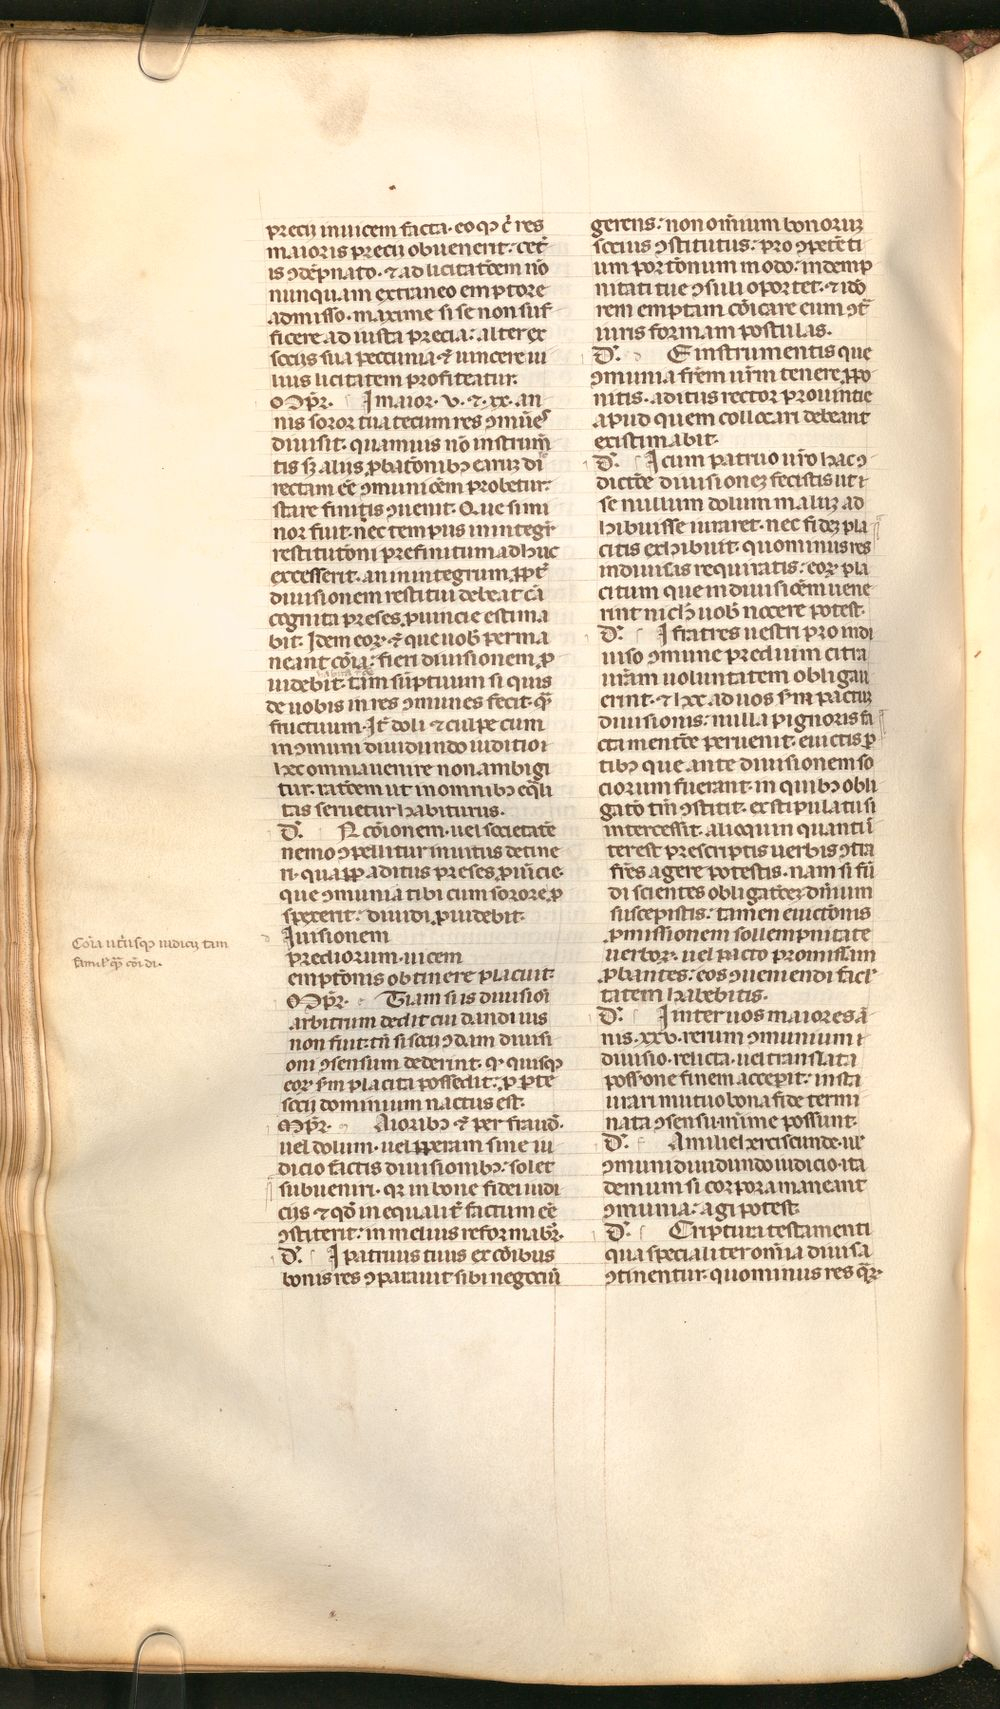 precii inuicem facta. eo qͥ ꝯ̃ res
maioris precii obuenerit: cet̃
is ↄdẽpnato. ⁊ ad licitatõem nõ
nunquam extraneo emptore
admisso. maxime si se non suf
ficere ad iusta precia: alter ex
sociis sua peccunia ⁊ uincere ui
lius licitatem profiteatur.
 Imaior. v. ⁊ xx. an
nis soror tua tecum res ↄmũes
diuisit. quamuis nõ instrum̃
tis sꝫ aliis ꝓbatõnibꝫ earuꝫ di
rectam eẽ ↄmunicẽm probetur:
stare finitis ↄuenit. Que si mi
nor fuit. nec tempus in integr̃
restitutõni prefinitum adhuc
excesserit. an in integrum ꝓpt̃
diuisionem restitui debeat cã
cognita preses ꝓuincie estima
bit. Idem eoꝝ ⁊ que uob̃ perma
neant cõia: fieri diuisionem ꝓ
uidebit. tam sũptuum si quis
de uobis in res ↄmunes fecit. q̃ꝫ
fructuum. It̃ doli ⁊ culpe cum
in ↄmuni diuidundo iuditio
hec omnia uenire non ambigi
tur. ratõem ut in omnibꝫ eq̃li
tas seruetur habiturus.
D̃. N cõionem. uel societatẽ
nemo ↄpellitur inuitus detine
ri. qua ꝓꝑ aditus preses ꝓuĩcie.
que ↄmunia tibi cum sorore ꝑ
spexerit: diuidi ꝓuidebit.
Iuisionem
prediorum. uicem
emptõnis obtinere placuit.
 Tiam si is diuisiõi
arbitrum dedit cui dandi ius
non fuit. tñ si socii ↄdam diuisi
oni ↄsensum dederint. qͥ quisqꝫ
eoꝝ s̃m placita possedit: ꝓ ꝑte
socii dominium nactus est.
 Aioribꝫ ⁊ per fraud̃.
uel dolum. uel ꝑperam sine iu
dicio factis diuisionibꝫ: solet
subueniri. qꝛ in bone fidei iudi
ciis ⁊ qͦd inequalit̃ factum eẽ
ↄstiterit: in melius reformabr̃.
D̃. I patruus tuus ex cõibus
bonis res ↄparauit sibi negociũ
gerens: non om̃ium bonoruꝫ
socius ↄstitutus: pro ↄpetẽti
um portõnum modo: indemp
nitati tue ↄsuli oportet. ⁊ iõ
rem emptam cõicare eum ↄt̃
iuris formam postulas.
D̃. E instrumentis que
ↄmunia frẽm ur̃m tenere ꝓpo
nitis. aditus rector prouintie
apud quem collocari debeant
existimabit.
D̃. I cum patruo ur̃o hac ↄ
dictõe diuisioneꝫ fecistis ut i
se nullum dolum maluꝫ ad
hibuisse iuraret. nec fideꝫ pla
citis exhibuit. quominus res
indiuisas requiratis: eoꝝ pla
citum que in diuisiõem uene
rint nich̃ uob̃ nocere potest.
D̃. I fratres uestri pro indi
uiso ↄmune predium citra
ur̃am uoluntatem obligau
erint. ⁊ hec ad uos s̃m pactũ
diuisionis: nulla pignoris fa
cta mentõe peruenit. euictis ꝑ
tibꝫ que ante diuisionem so
ciorum fuerant. in quibꝫ obli
gatõ tm̃ ↄstitit. ex stipulatu si
intercessit. alioquin quanti i
terest prescriptis uerbis ↄtra
frẽs agere potestis. nam si fũ
di scientes obligatõeꝫ dñium
suscepistis: tamen euictõnis
ꝓmissionem sollempnitate
uerboꝝ. uel pacto promissam
ꝓbantes: eos ↄueniendi facl̃
tatem habebitis.
D̃. I inter uos maiores ã
nis. xxv. rerum ↄmunium i
diuisio. relicta. uel translata
poss̃one finem accepit: insta
urari mutuo bona fide termi
nata ↄsensu. mĩme possunt.
D̃. Amiliẽ erciscunde. uꝉ
ↄmuni diuidundo iudicio. ita
demum si corpora maneant
ↄmunia: agi potest.
D̃. Criptura testamenti
qua specialiter om̃ia diuisa
ↄtinentur. quominus res q̃ꝝ
Cõia utͥusqꝫ iudicij tam